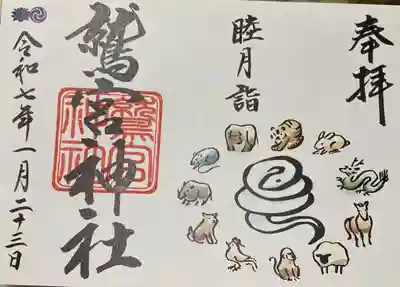 奉拝
睦月詣
鷲宮神社
令和七年一月二十三日